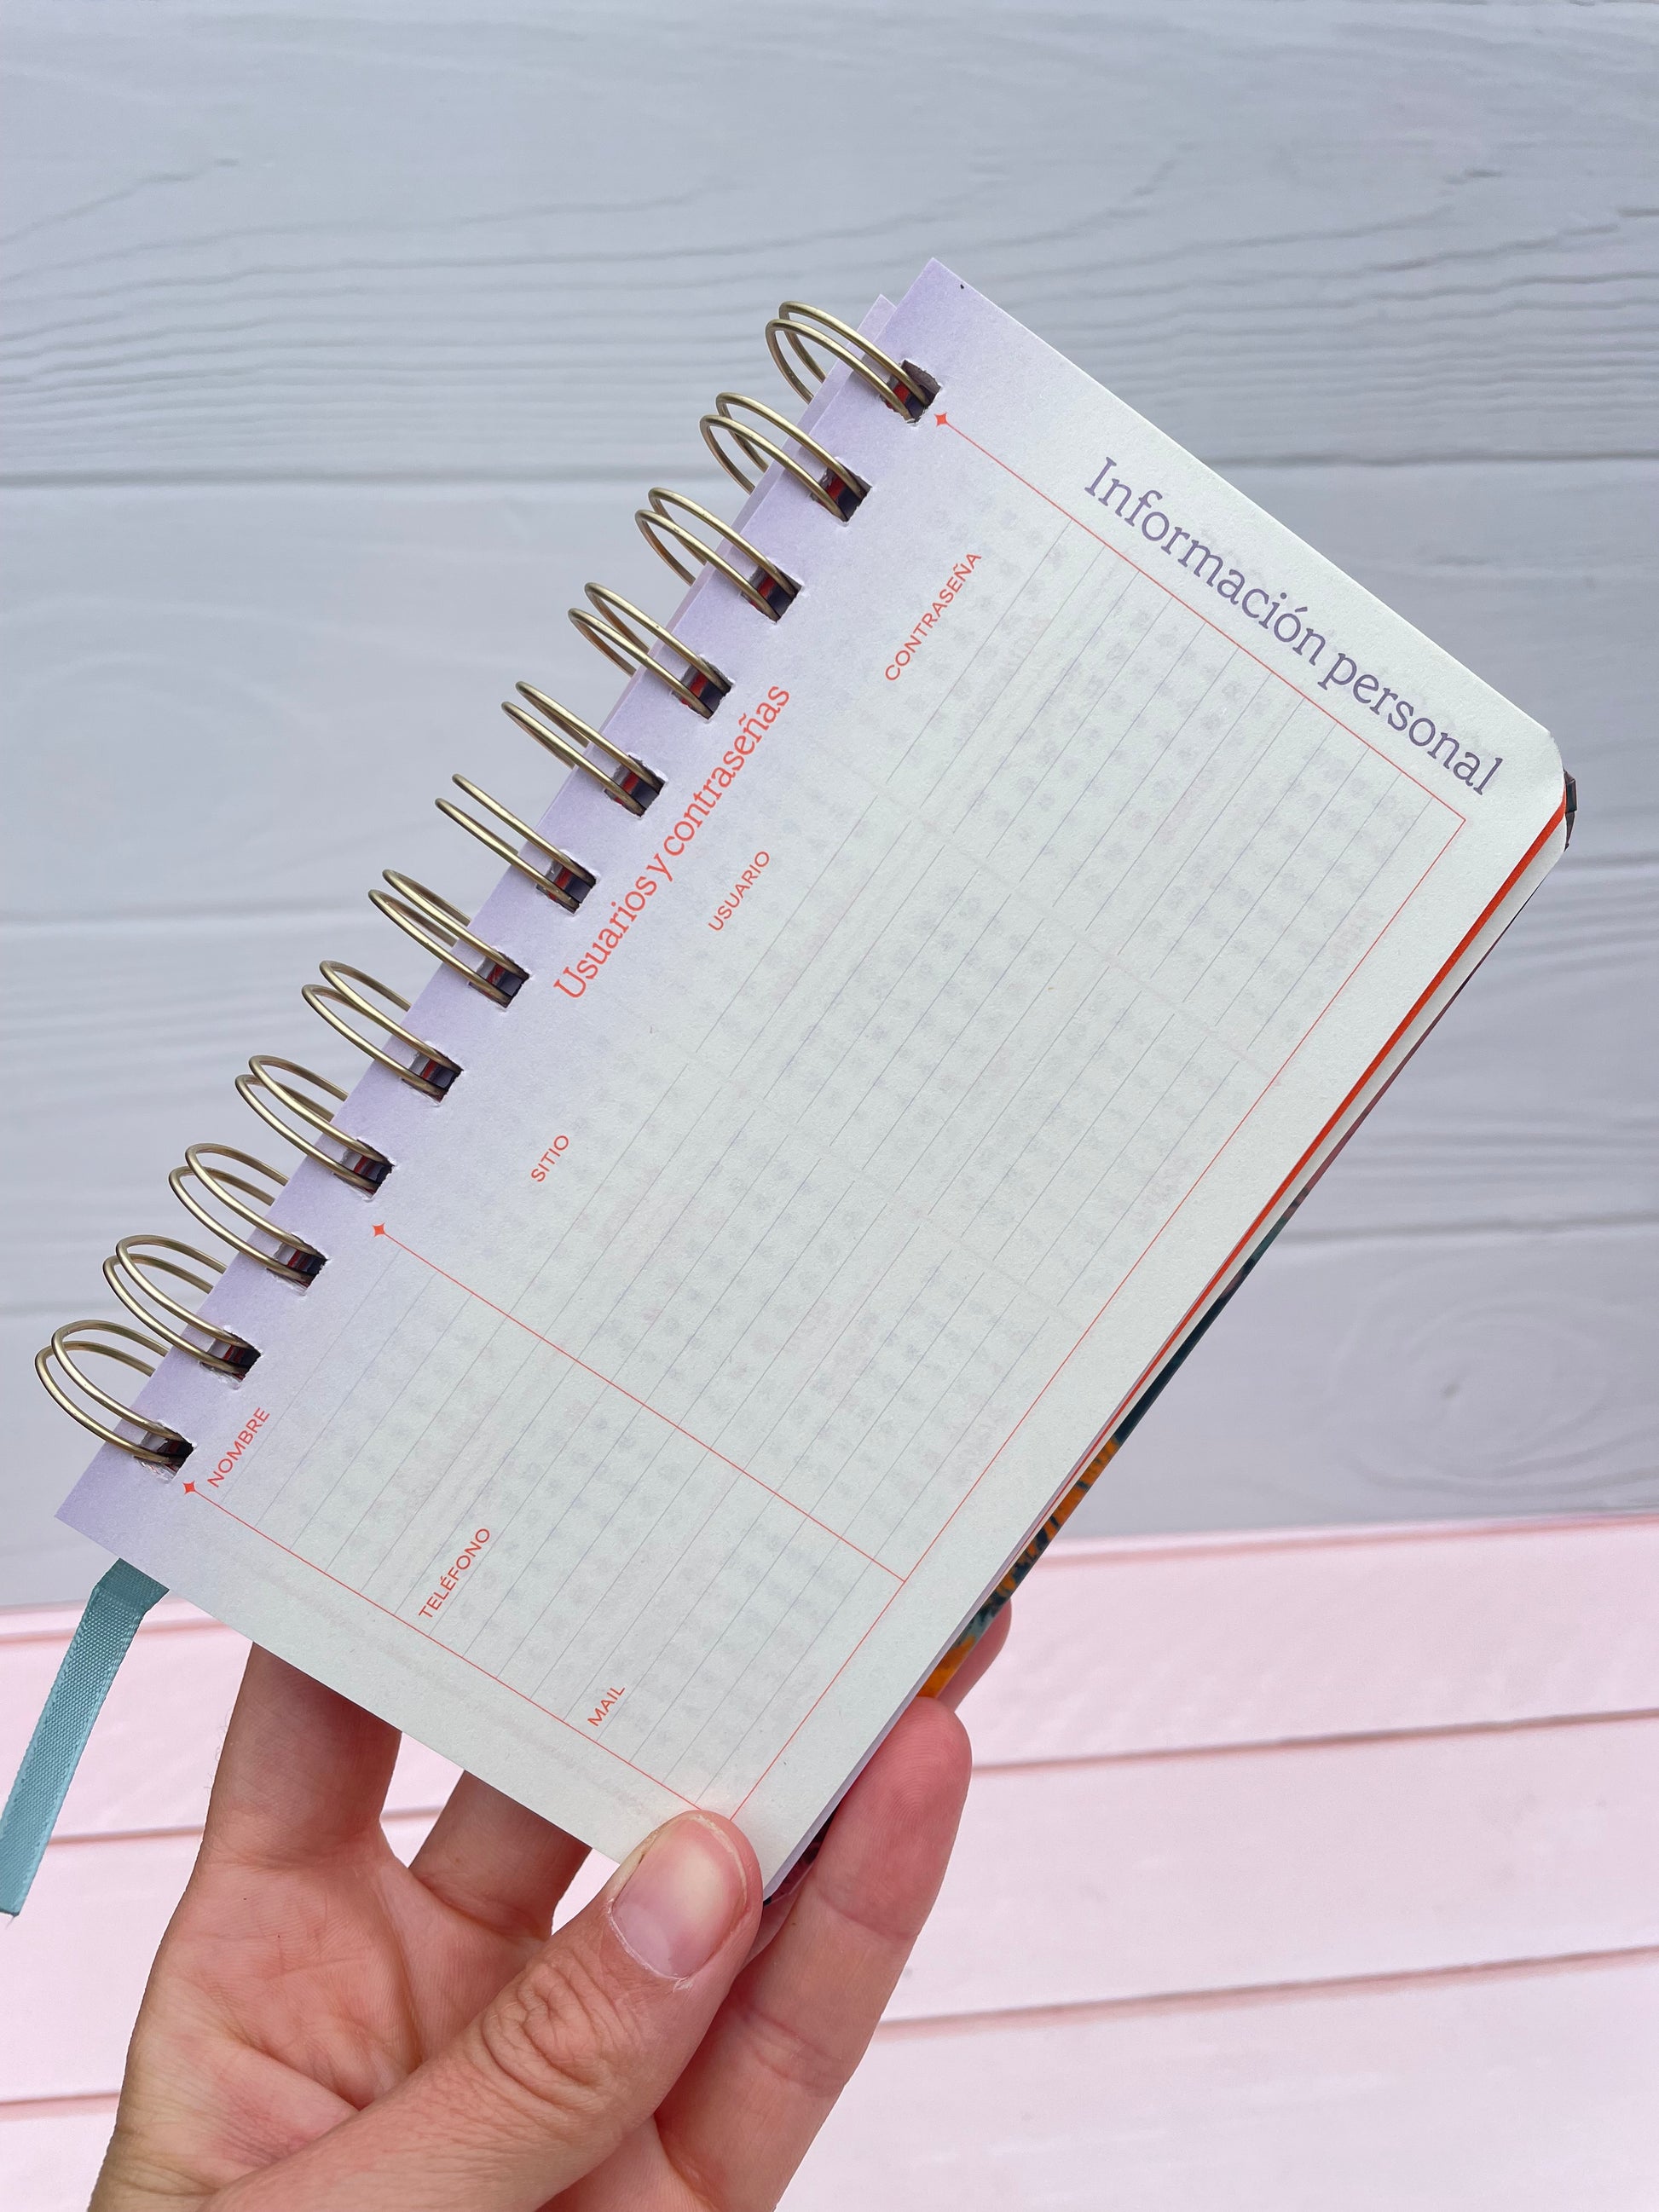 Información personal
NOMBRE
TELÉFONO
MAIL
Usuarios y contraseñas
SITIO
USUARIO
CONTRASEÑA